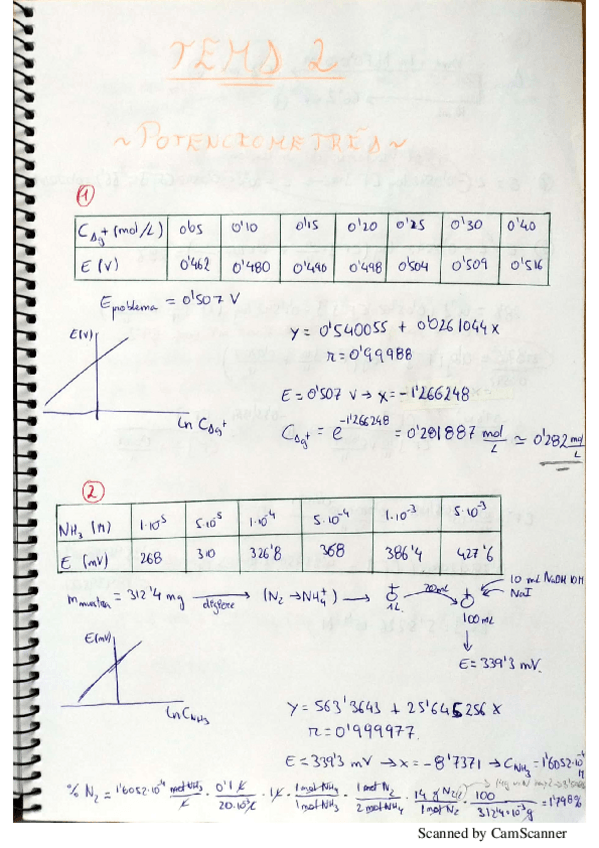 TEMA 2
~POTENCIOMETRÍA~
1
C_Ag+ (mol/L) 0'05 0'10 0'15 0'20 0'25 0'30 0'40
E (V) 0'462 0'480 0'490 0'498 0'504 0'509 0'516
E problema = 0'507 V
E(V)
Y = 0'540055 + 0'0261044 x
r = 0'99988
E = 0'507 V → x = -1'266248
Ln C_Ag+
C_Ag+ = e^-1'266248 = 0'281887 mol/L ≃ 0'282 mol/L
2
NH3 (M) 1·10^-5 5·10^-5 1·10^-4 5·10^-4 1·10^-3 5·10^-3
E (mV) 268 310 326'8 368 386'4 427'6
m muestra = 312'4 mg digiere → (N2 → NH4+) → 1L. 20mL 10 mL NaOH 10M
NaI
100 mL
E = 339'3 mV.
E(mV)
Ln C_NH3
Y = 563'3643 + 25'645256 x
r = 0'999977
E = 339'3 mV → x = -8'7371 → C_NH3 = 1'6052·10^-4 M
% N2 = 1'6052·10^-4 mol NH3/L · 0'1 L/20·10^-3 L · 1 L · 1 mol NH4/1 mol NH3 · 1 mol N2/2 mol NH4 · 14 g N2/1 mol N2 · 100/312'4·10^-3 g = 1'798%
Scanned by CamScanner